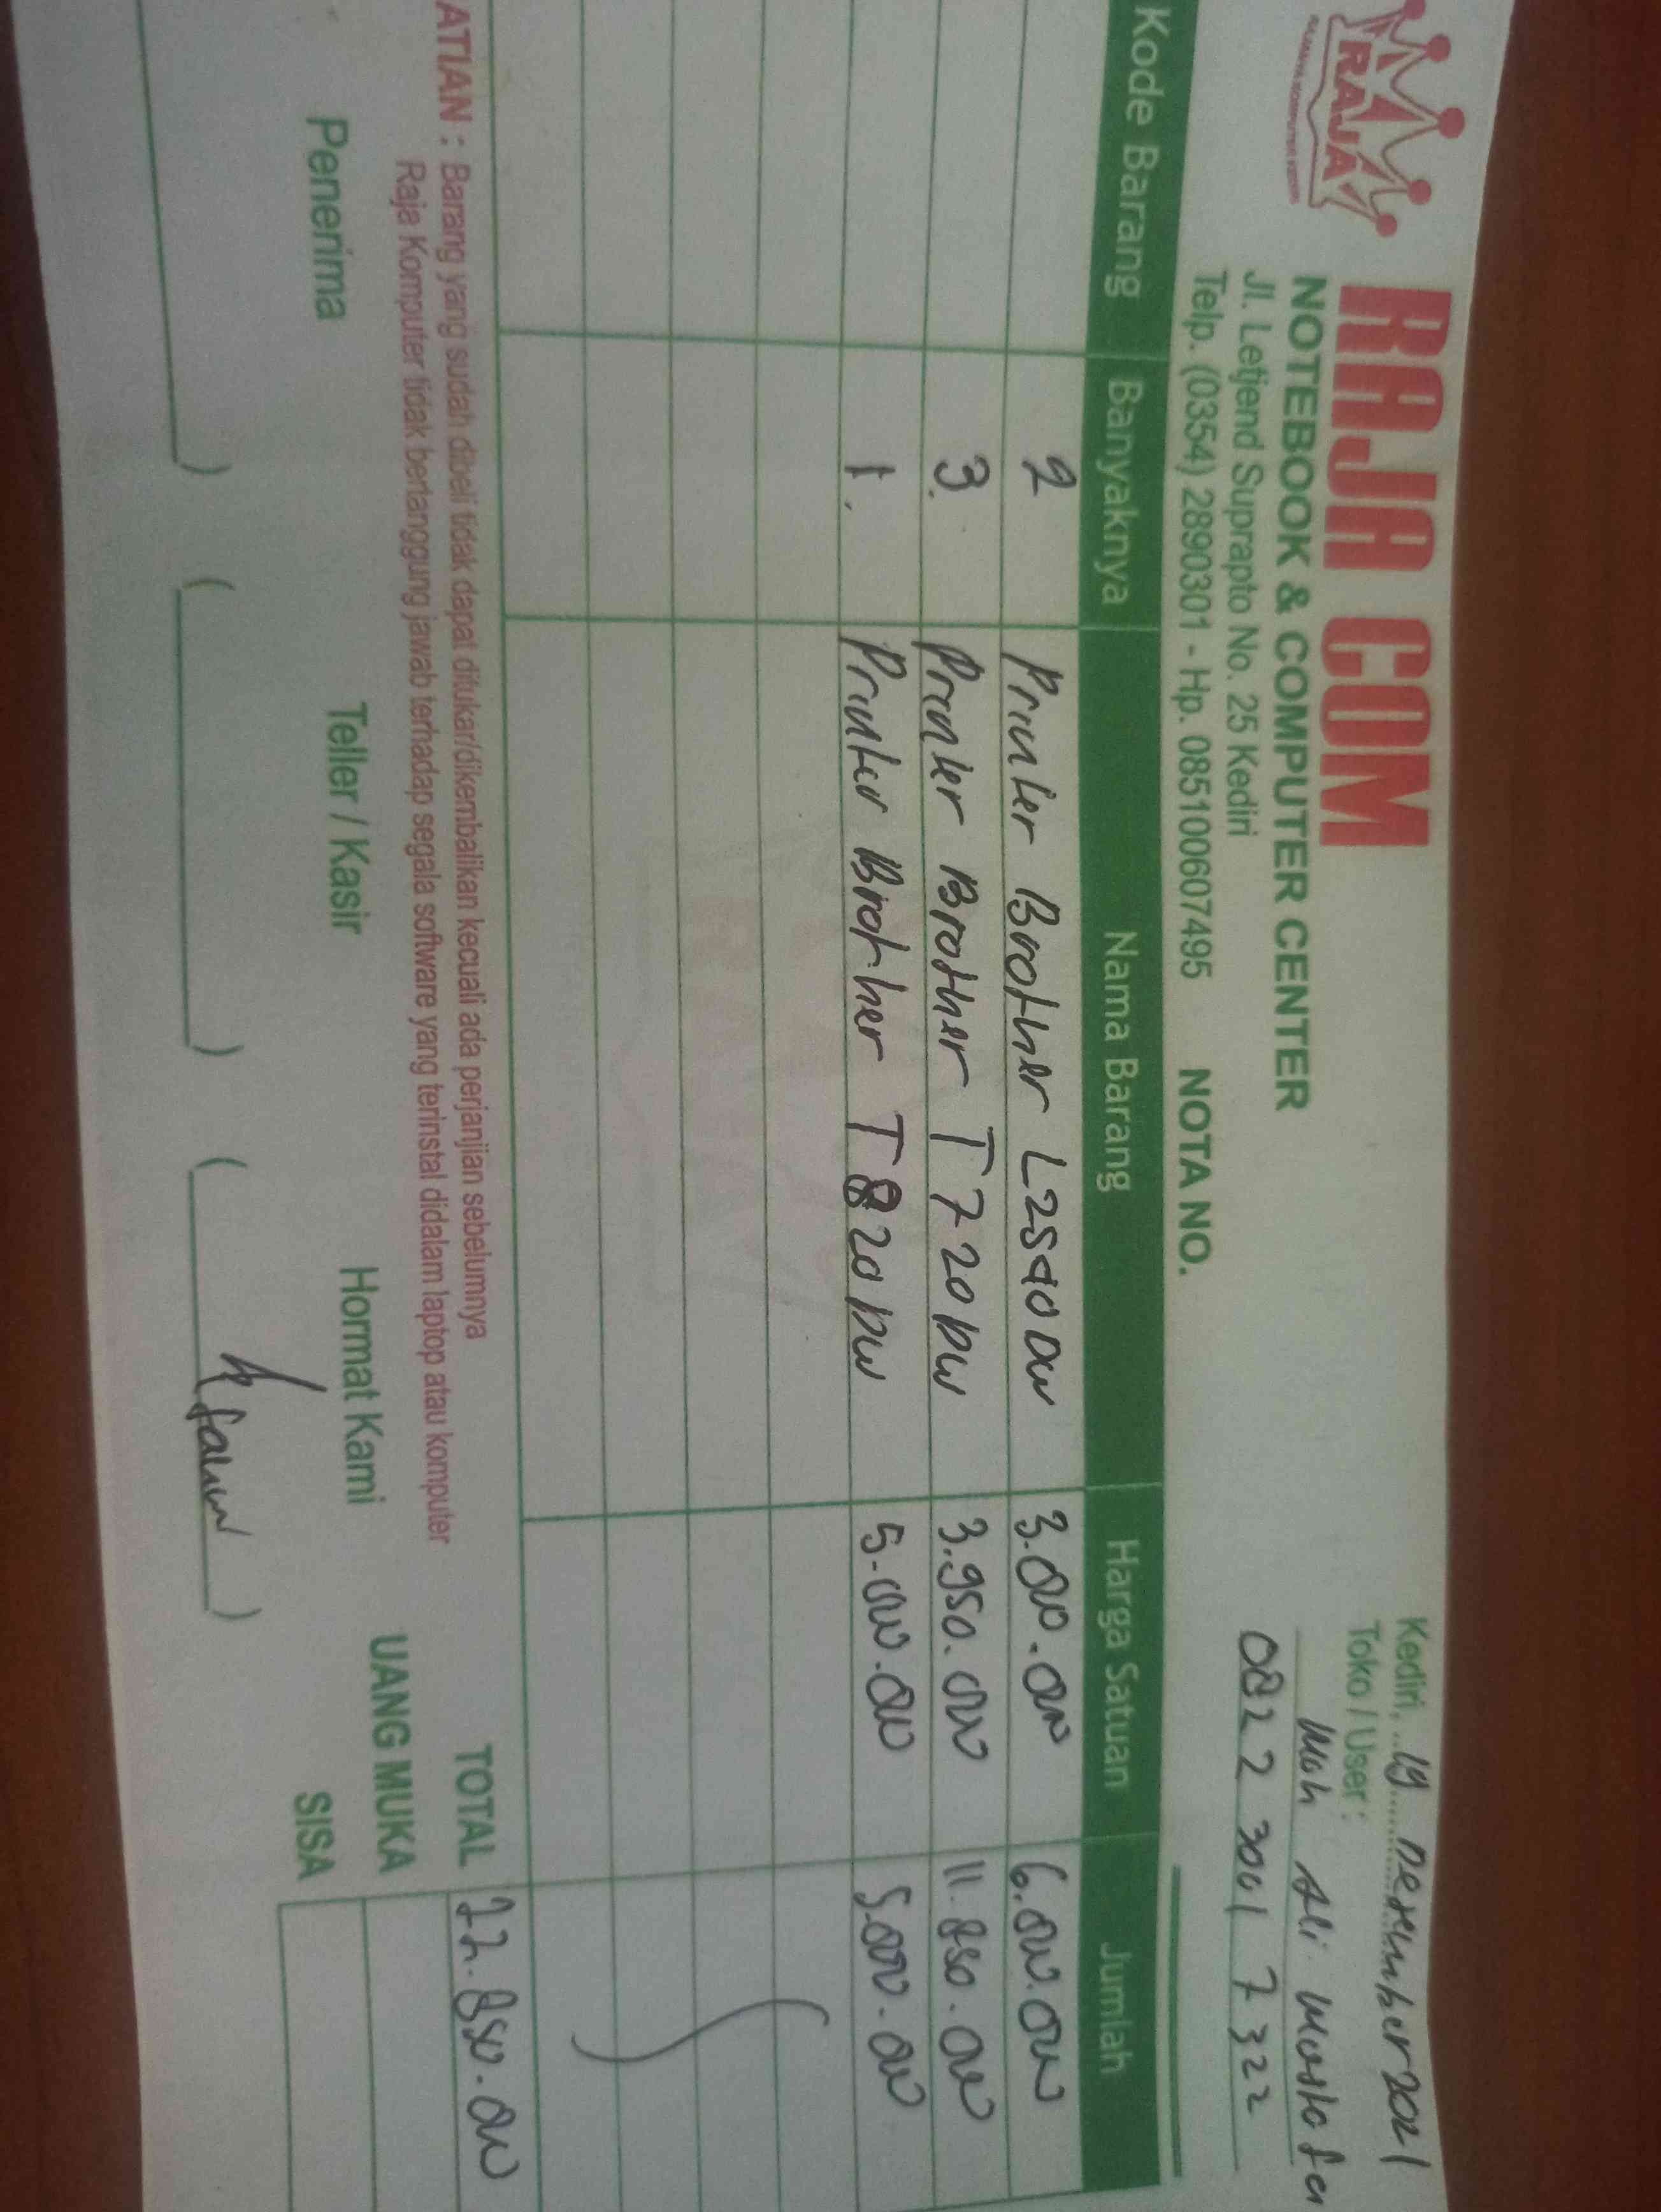 RAJA
RAJA COM
NOTEBOOK & COMPUTER CENTER
Jl. Letjend Suprapto No. 25 Kediri
Telp. (0354) 2890301 - Hp. 085100607495
NOTA NO.
Kediri, 19 Desember 2021
Toko / User :
Moh Ali
082230017322
Kode Barang Banyaknya Nama Barang Harga Satuan Jumlah
2 Printer Brother L2540DW 3.000.000 6.000.000
3. Printer Brother T720DW 3.950.000 11.850.000
1. Printer Brother T820DW 5.000.000 5.000.000
ATIAN : Barang yang sudah dibeli tidak dapat ditukar/dikembalikan kecuali ada perjanjian sebelumnya
Raja Komputer tidak bertanggung jawab terhadap segala software yang terinstal didalam laptop atau komputer
TOTAL 22.850.000
UANG MUKA
SISA
Penerima Teller / Kasir Hormat Kami